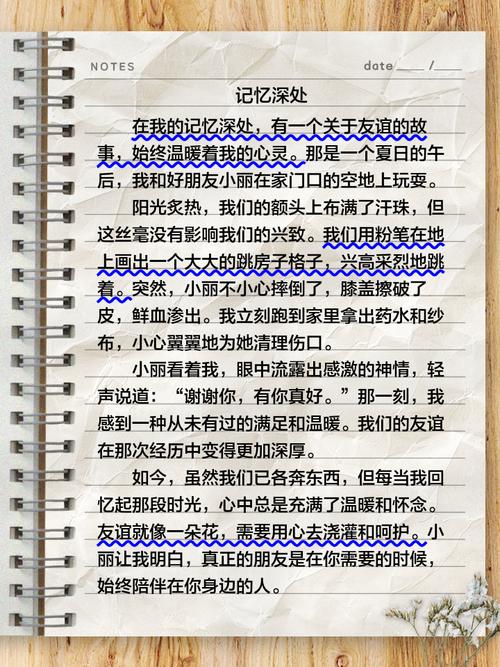 NOTES
date____ /____
记忆深处
在我的记忆深处，有一个关于友谊的故
事，始终温暖着我的心灵。那是一个夏日的午
后，我和好朋友小丽在家门口的空地上玩耍。
阳光炙热，我们的额头上布满了汗珠，但
这丝毫没有影响我们的兴致。我们用粉笔在地
上画出一个大大的跳房子格子，兴高采烈地跳
着。突然，小丽不小心摔倒了，膝盖擦破了
皮，鲜血渗出。我立刻跑到家里拿出药水和纱
布，小心翼翼地为她清理伤口。
小丽看着我，眼中流露出感激的神情，轻
声说道：“谢谢你，有你真好。”那一刻，我
感到一种从未有过的满足和温暖。我们的友谊
在那次经历中变得更加深厚。
如今，虽然我们已各奔东西，但每当我回
忆起那段时光，心中总是充满了温暖和怀念。
友谊就像一朵花，需要用心去浇灌和呵护。小
丽让我明白，真正的朋友是在你需要的时候，
始终陪伴在你身边的人。